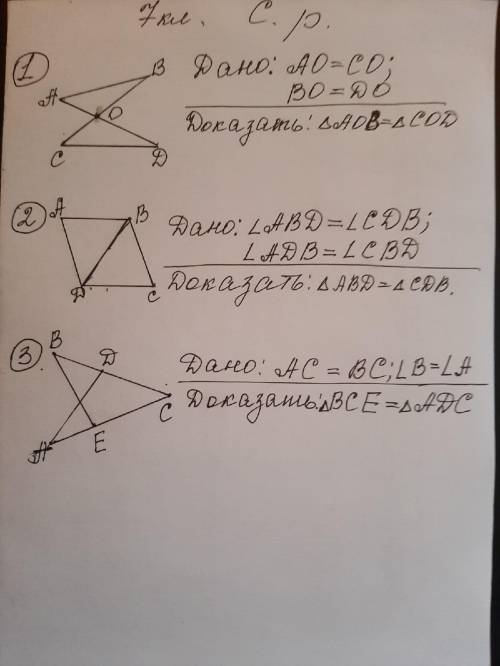 7кл. С. р.
1
Дано: AO=CO;
BO=DO
Доказать: △AOB=△COD
A
B
O
C
D
2
Дано: ∠ABD=∠CDB;
∠ADB=∠CBD
Доказать: △ABD=△CDB.
A
B
D
C
3
Дано: AC = BC; ∠B=∠A
Доказать: △BCE=△ADC
B
D
C
E
A